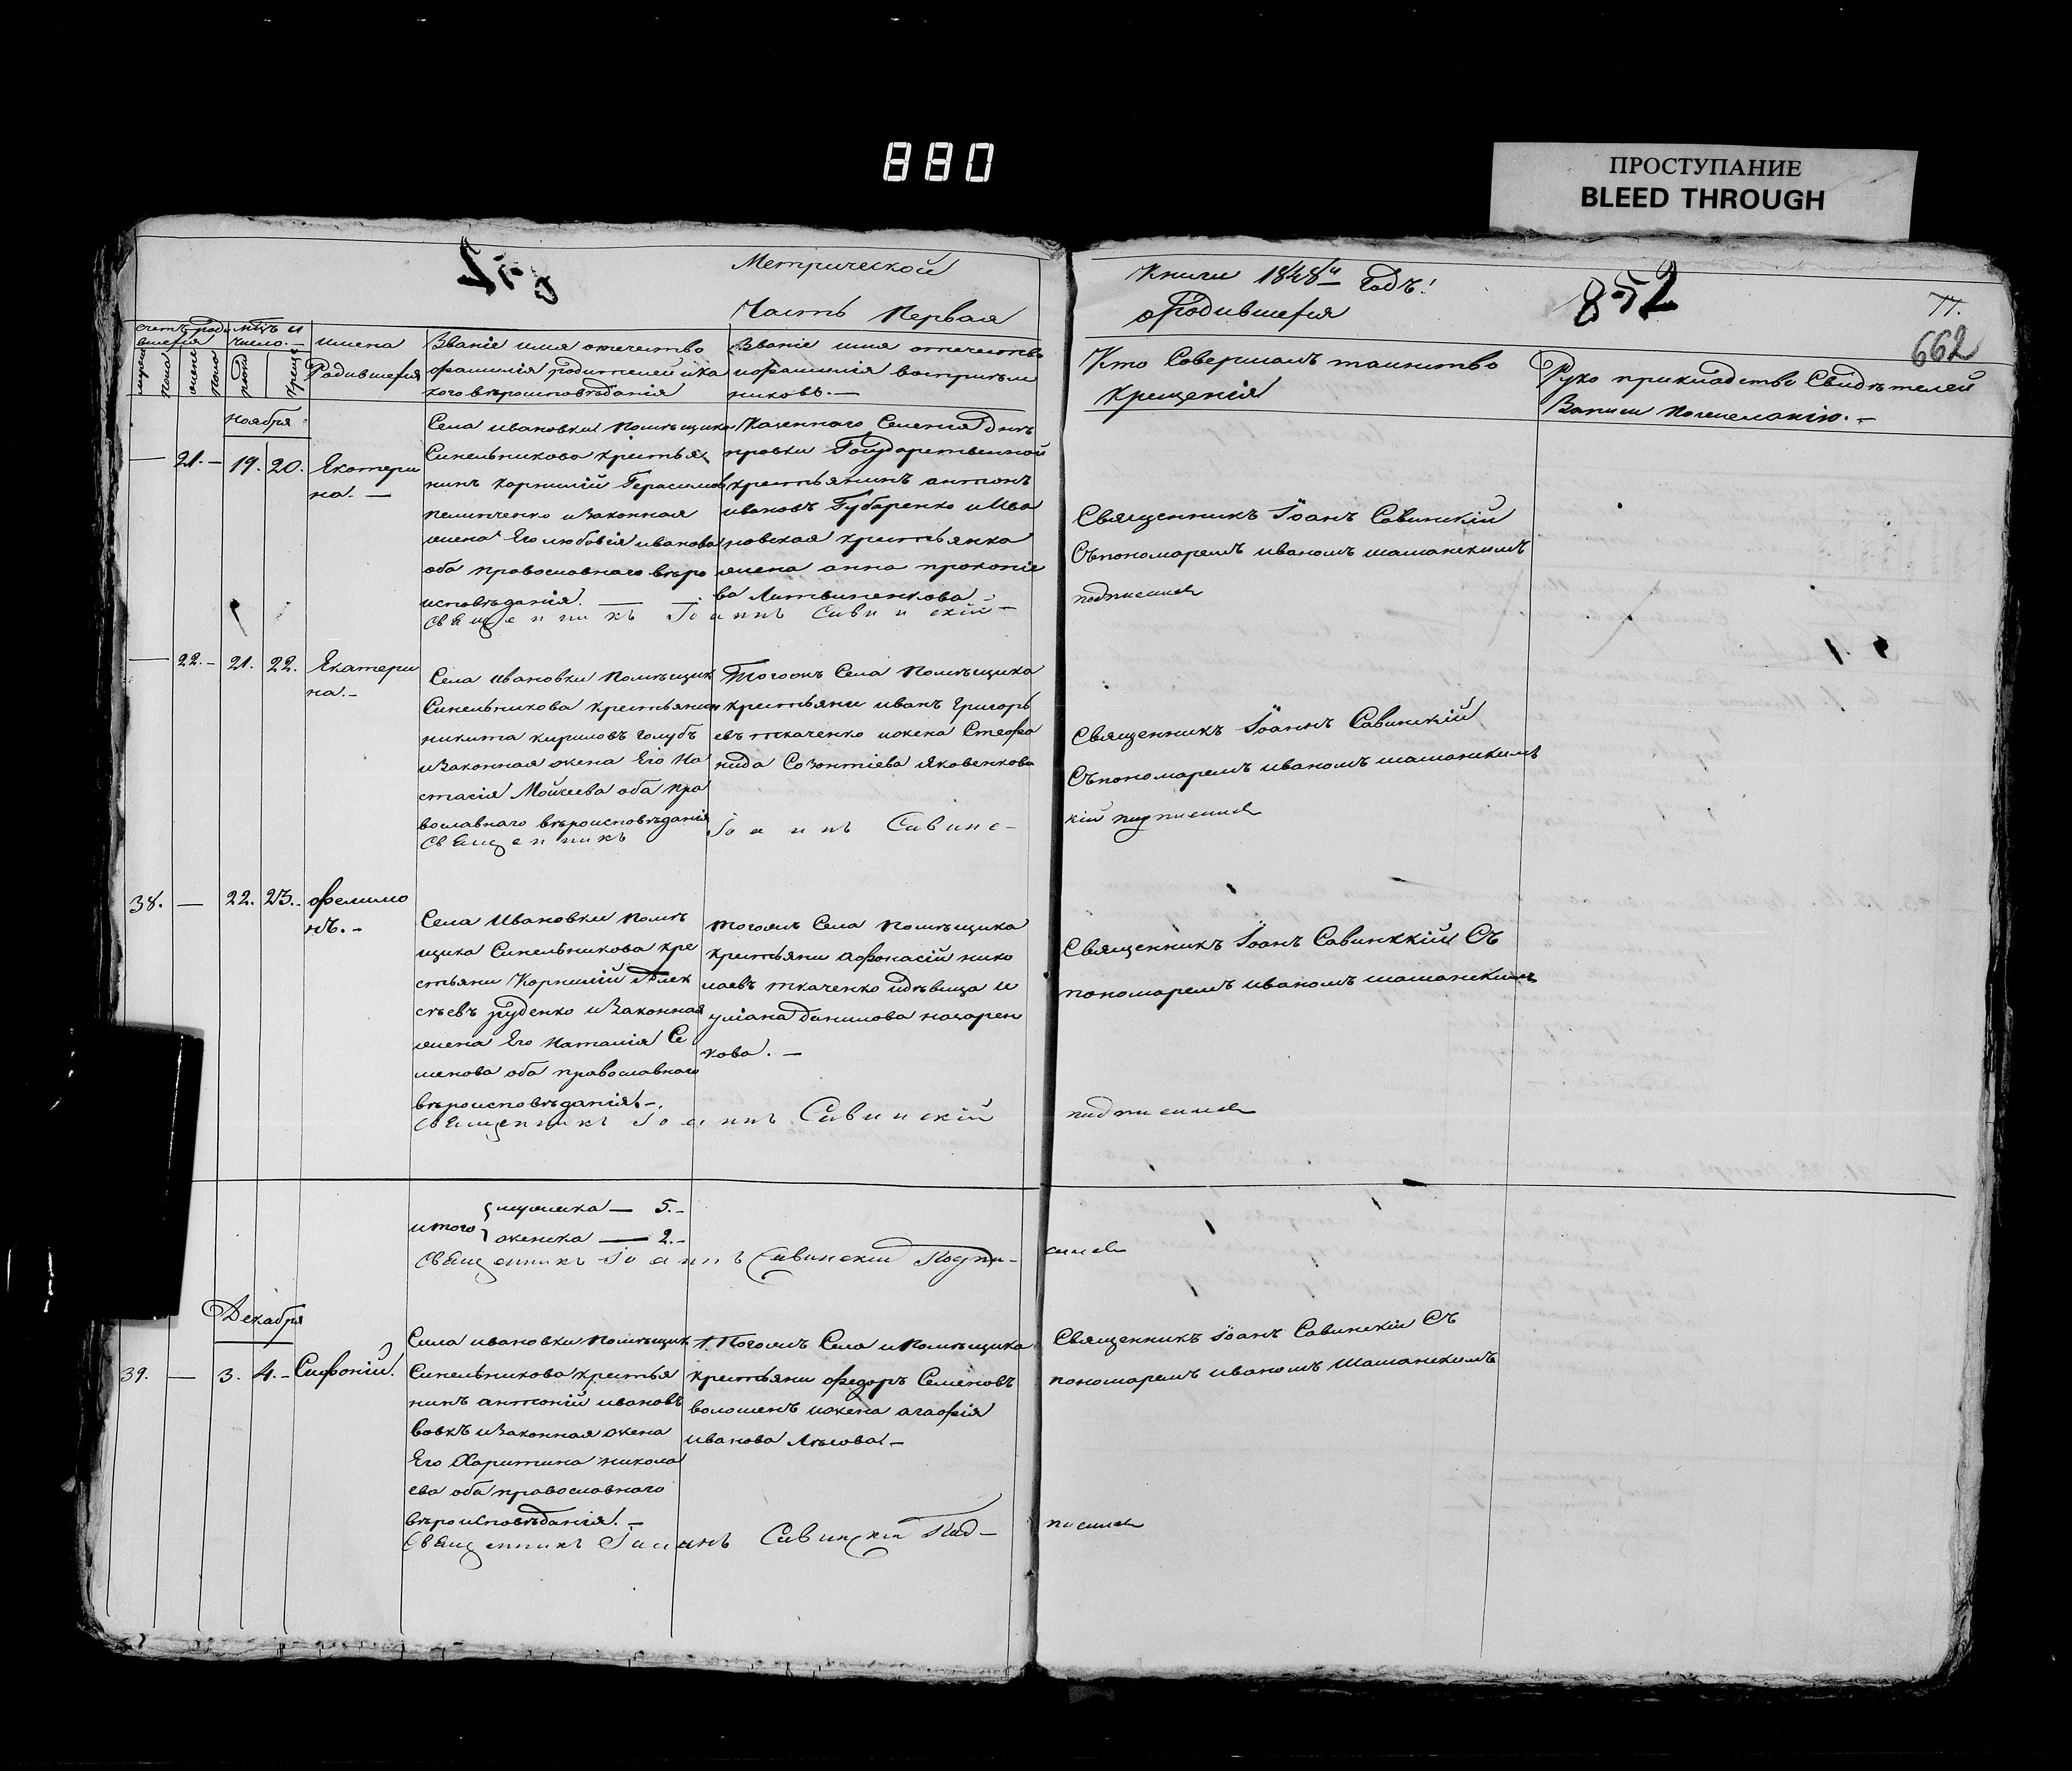 880
ПРОСТУПАНИЕ
BLEED THROUGH
852
Метрической
Часть Первая
Книги 1848й годъ!
о Родившихся
852
77.
662
счетъ роди
вшихся
мѣсъ и
число.
имена
Родившихся
Званіе имя отечество
и фамилія родителей и ка
кого вѣроисповѣданія
Званіе имя отечество
и фамилія воспріем
никовъ.—
Кто Совершалъ таинство
Крещенія
Руко прикладство Свидѣтелей
Записи по желанію.—
Ноября
— 21.— 19. 20. Екатери
на.—
Села Ивановки Помѣщика
Синельникова крестья
нинъ Корнилій Герасимовъ
и Законная
жена Его любовія иванова
оба православнаго вѣро
исповѣданія.—
Казеннаго Селенія Днѣ
провки Государственной
крестьянинъ антонъ
ивановъ Губаренко и Ива
новская крестьянка
жена анна прокопіе
ва Литвиненкова
Священникъ Іоаннъ Савинскій—
Священникъ Іоанъ Савинскій
Съ пономаремъ иваномъ шашанскимъ
подписался
— 22.— 21. 22. Екатери
на.—
Села ивановки Помѣщик
Синельникова крестьянин
никита кириловъ голубъ
и Законная жена Его На
стасія Мойсеева оба пра
вославнаго вѣроисповѣданія
Тогожъ Села Помѣщика
крестьяне иванъ Григорь
евъ ткаченко и жена Стефа
нида Созонтіева Яковенкова
Священникъ Іоаннъ Савинс—
Священникъ Іоаннъ Савинскій
Съ пономаремъ иваномъ шашанскимъ
кій подписался
38. — 22. 23.— Филимо
нъ.—
Села Ивановки Помѣ
щика Синельникова кре
стьяни Корнилій Алек
сѣевъ Руденко и Законная
жена Его Наталія Се
менова оба православнаго
вѣроисповѣданія.—
тогожъ Села Помѣщика
крестьяни Афонасій нико
лаевъ ткаченко и дѣвица и
уліана данилова назарен
кова.—
Священникъ Іоаннъ Савинскій
Священникъ Іоанъ Савинккій Съ
пономаремъ иваномъ шашанскимъ
подписался
итого
мужеска — 5.—
женска — 2.—
Священникъ Іоаннъ Савинскій Подпи—
сался
Декабря
39. — 3. 4.— Сифоній.
Села ивановки помѣщик
Синельникова крестья
нинъ антоній ивановъ
Вовкъ и Законная жена
Его Харитина никола
ева оба православнаго
вѣроисповѣданія.—
Тогожъ Села и Помѣщика
крестьяни федоръ Семеновъ
волошенъ и жена агафія
иванова
Священникъ Іоаннъ Савинскій Под—
Священникъ Іоанъ Савинскій Съ
пономаремъ иваномъ Шашанскимъ
писался